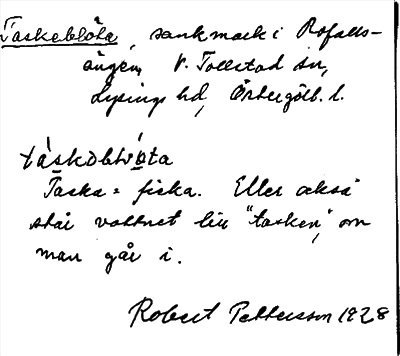 Taskeblöta, sankmark i Rofalls-
ängen, V. Tollstad sn,
Lysings hd, Östergötl. l.
tàskòblø̀ta
Taska = ficka. Eller också
står vattnet till "tasken", om
man går i.
Robert Pettersson 1928